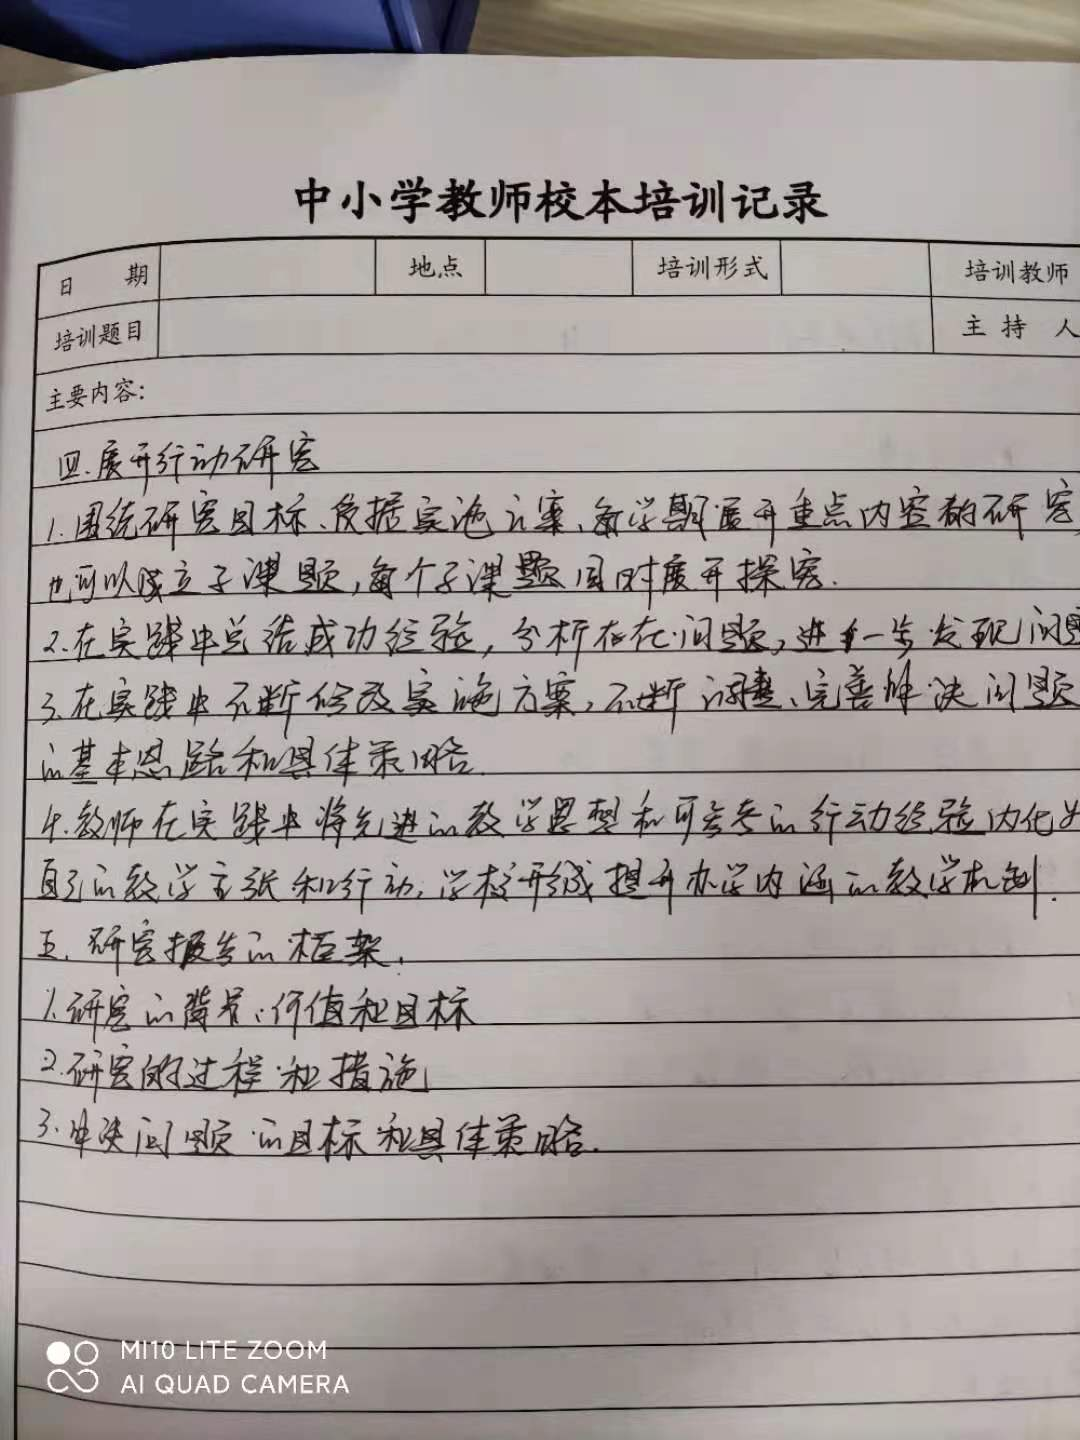 中小学教师校本培训记录
日 期 地点 培训形式 培训教师
培训题目 主 持 人
主要内容:
四.展开行动研究
1.围绕研究目标、依据实施方案、每学期展开重点内容的研究
也可以成立子课题,每个子课题同时展开探究.
2.在实践中总结成功经验,分析存在问题,进一步发现问题
3.在实践中不断修改实施方案,不断调整、完善解决问题
的基本思路和具体策略.
4.教师在实践中将先进的教学思想和可参考的行动经验内化为
自己的教学主张和行动,学校形成提升办学内涵的教学机制.
五.研究报告的框架.
1.研究的背景、价值和目标
2.研究的过程和措施
3.解决问题的目标和具体策略.
MI10 LITE ZOOM
AI QUAD CAMERA